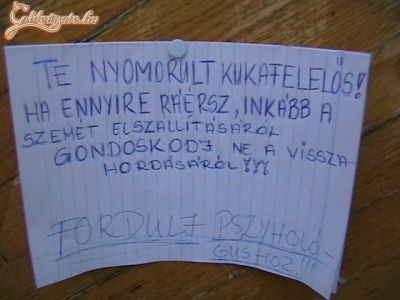 TE NYOMORULT KUKAFELELŐS!
HA ENNYIRE RÁÉRSZ, INKÁBB A
SZEMÉT ELSZÁLLÍTÁSÁRÓL
GONDOSKODJ, NE A VISSZA-
HORDÁSÁRÓL!!!
FORDULJ PSZYHOLÓ-
GUSHOZ!!!